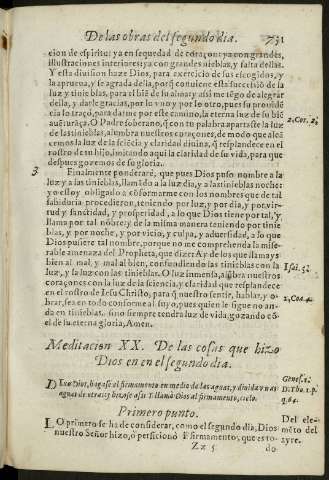 De las obras del segundo dia. 731
cion de espiritu: ya en sequedad de coraçon: ya con grandes,
illustraciones interiores: ya con grandes nieblas, y falta dellas.
Y esta diuision haze Dios, para exercicio de sus escogidos, y
la aprueua, y se agrada della, porq̃ conuiene esta succesiõ de la
luz y tinieblas, para el biẽ de su alma: y assi me tẽgo de alegrar
della, y darle gracias, por lo vno y por lo otro, pues su prouidẽ
cia lo traçò, para darme por este camino, la eterna luz de su biẽ
auẽturãça. O Padre soberano, q̃ con tu palabra apartaste la luz
de las tinieblas, alumbra nuestros coraçones, de modo que alcã
cemos la luz de la sciẽcia y claridad diuina, q̃ resplandece en el
rostro de su hijo, imitando aqui la claridad de su vida, para que
despues gozemos de su gloria.
2. Cor. 2.
3 Finalmente ponderarè, que pues Dios puso nombre a la
luz y a las tinieblas, llamãdo a la luz, dia, y a las tinieblas noche:
yo estoy obligado a cõformarme con los nombres que de tal
sabiduria procedieron, teniendo por luz, y por dia, y por vir-
tud y sanctidad, y prosperidad, a lo que Dios tiene por tal, y
llama por tal nõbre: y de la misma manera teniendo por tinie
blas, y por noche, y por vicio, y culpa, y aduersidad, a lo que
Dios pusiere tal nombre, porque no me comprehenda la mise-
rable amenaza del Propheta, que dize: Ay de los que llamays
bien al mal, y mal al bien, confundiendo las tinieblas con la
luz, y la luz con las tinieblas. O luz inmensa, alũbra nuestros
coraçones con la luz de la sciencia, y claridad que resplandece
en el rostro de Iesu Christo, para q̃ nuestro sentir, hablar, y o-
brar, sea en todo conforme al suyo, pues quien le sigue no an-
da en tinieblas, sino siempre tendra luz de vida, gozando cõ
el de lu eterna gloria, Amen.
Isai. 5.
2. Cor. 4.
Meditacion XX. De las cosas que hizo
Dios en en el segundo dia.
DIxo Dios, hagase el firmamento en medio de las aguas, y diuida vnas
aguas de otras: y hizose assi: Y llamò Dios al firmamento, cielo.
Genes. 1.
D. Tho. 1. p.
q. 64.
Primero punto.
LO primero se ha de considerar, como el segundo dia, Dios
nuestro Señor hizo, ò perficionò el firmamento, que es to-
Del ele-
mẽto del
ayre.
Zz 5 do